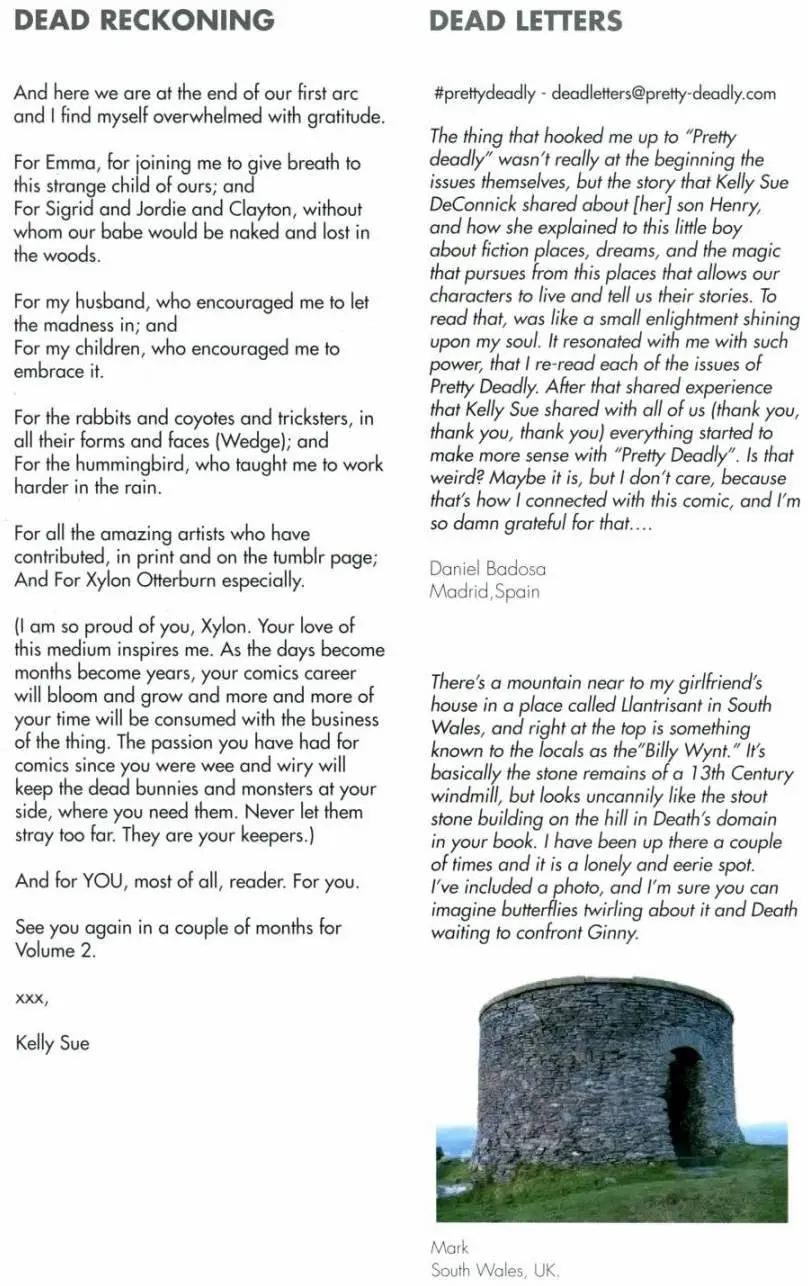 DEAD RECKONING
And here we are at the end of our first arc
and I find myself overwhelmed with gratitude.
For Emma, for joining me to give breath to
this strange child of ours; and
For Sigrid and Jordie and Clayton, without
whom our babe would be naked and lost in
the woods.
For my husband, who encouraged me to let
the madness in; and
For my children, who encouraged me to
embrace it.
For the rabbits and coyotes and tricksters, in
all their forms and faces (Wedge); and
For the hummingbird, who taught me to work
harder in the rain.
For all the amazing artists who have
contributed, in print and on the tumblr page;
And For Xylon Otterburn especially.
(I am so proud of you, Xylon. Your love of
this medium inspires me. As the days become
months become years, your comics career
will bloom and grow and more and more of
your time will be consumed with the business
of the thing. The passion you have had for
comics since you were wee and wiry will
keep the dead bunnies and monsters at your
side, where you need them. Never let them
stray too far. They are your keepers.)
And for YOU, most of all, reader. For you.
See you again in a couple of months for
Volume 2.
xxx,
Kelly Sue
DEAD LETTERS
#prettydeadly - deadletters@pretty-deadly.com
The thing that hooked me up to "Pretty
deadly" wasn't really at the beginning the
issues themselves, but the story that Kelly Sue
DeConnick shared about [her] son Henry,
and how she explained to this little boy
about fiction places, dreams, and the magic
that pursues from this places that allows our
characters to live and tell us their stories. To
read that, was like a small enlightment shining
upon my soul. It resonated with me with such
power, that I re-read each of the issues of
Pretty Deadly. After that shared experience
that Kelly Sue shared with all of us (thank you,
thank you, thank you) everything started to
make more sense with "Pretty Deadly". Is that
weird? Maybe it is, but I don't care, because
that's how I connected with this comic, and I'm
so damn grateful for that....
Daniel Badosa
Madrid,Spain
There's a mountain near to my girlfriend's
house in a place called Llantrisant in South
Wales, and right at the top is something
known to the locals as the"Billy Wynt." It's
basically the stone remains of a 13th Century
windmill, but looks uncannily like the stout
stone building on the hill in Death's domain
in your book. I have been up there a couple
of times and it is a lonely and eerie spot.
I've included a photo, and I'm sure you can
imagine butterflies twirling about it and Death
waiting to confront Ginny.
Mark
South Wales, UK.